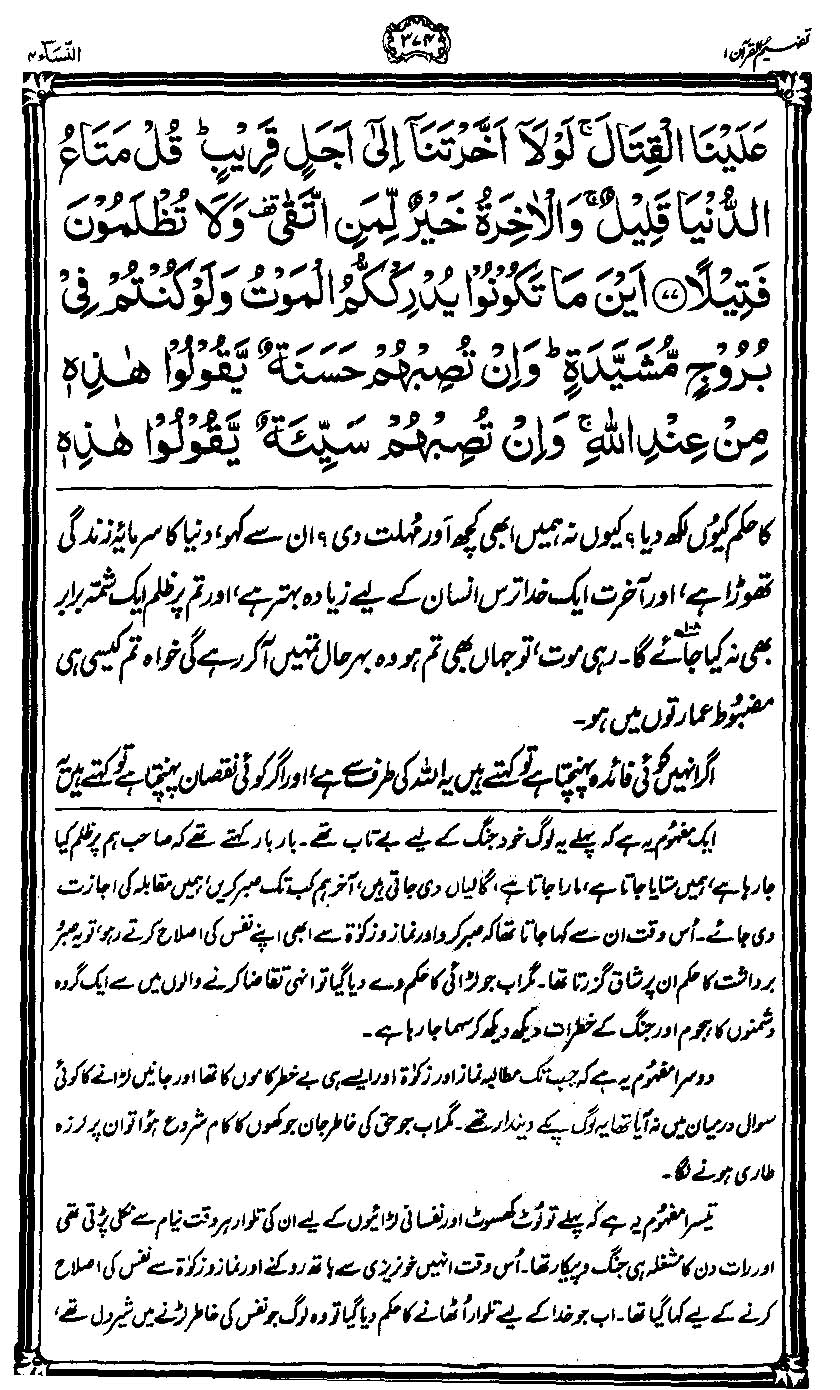 تفہیم القرآن ۱
۳۷۴
النساء ۴
عَلَيْنَا الْقِتَالَ ۚ لَوْلَآ اَخَّرْتَنَآ اِلٰٓى اَجَلٍ قَرِيْبٍ ؕ قُلْ مَتَاعُ
الدُّنْيَا قَلِيْلٌ ۚ وَالْاٰخِرَةُ خَيْرٌ لِّمَنِ اتَّقٰى ۫ وَلَا تُظْلَمُوْنَ
فَتِيْلًا ﴿۷۷﴾ اَيْنَ مَا تَكُوْنُوْا يُدْرِكْكُّمُ الْمَوْتُ وَلَوْ كُنْتُمْ فِيْ
بُرُوْجٍ مُّشَيَّدَةٍ ؕ وَاِنْ تُصِبْهُمْ حَسَنَةٌ يَّقُوْلُوْا هٰذِهٖ
مِنْ عِنْدِ اللّٰهِ ۚ وَاِنْ تُصِبْهُمْ سَيِّئَةٌ يَّقُوْلُوْا هٰذِهٖ
کا حکم کیوں لکھ دیا؟ کیوں نہ ہمیں ابھی کچھ اور مُہلت دی؟ ان سے کہو، دنیا کا سرمایۂ زندگی
تھوڑا ہے، اور آخرت ایک خدا ترس انسان کے لیے زیادہ بہتر ہے، اور تم پر ظلم ایک شمّہ برابر
بھی نہ کیا جائے گا۔ رہی موت، تو جہاں بھی تم ہو وہ بہرحال تمہیں آ کر رہے گی خواہ تم کیسی ہی
مضبُوط عمارتوں میں ہو۔
اگر انہیں کوئی فائدہ پہنچتا ہے تو کہتے ہیں یہ اللہ کی طرف سے ہے، اور اگر کوئی نقصان پہنچتا ہے تو کہتے ہیں یہ
ایک مفہُوم یہ ہے کہ پہلے یہ لوگ خود جنگ کے لیے بے تاب تھے۔ بار بار کہتے تھے کہ صاحب ہم پر ظلم کیا
جا رہا ہے، ہمیں ستایا جاتا ہے، مارا جاتا ہے، گالیاں دی جاتی ہیں، آخر ہم کب تک صبر کریں، ہمیں مقابلہ کی اجازت
دی جائے۔ اُس وقت ان سے کہا جاتا تھا کہ صبر کرو اور نماز و زکوٰۃ سے ابھی اپنے نفس کی اصلاح کرتے رہو، تو یہ صبر و
برداشت کا حکم ان پر شاق گزرتا تھا۔ مگر اب جو لڑائی کا حکم دے دیا گیا تو انہی تقاضا کرنے والوں میں سے ایک گروہ
دشمنوں کا ہجوم اور جنگ کے خطرات دیکھ دیکھ کر سہما جا رہا ہے۔
دوسرا مفہُوم یہ ہے کہ جب تک مطالبہ نماز اور زکوٰۃ اور ایسے ہی بے خطر کاموں کا تھا اور جانیں لڑانے کا کوئی
سوال درمیان میں نہ آیا تھا یہ لوگ پکے دیندار تھے۔ مگر اب جو حق کی خاطر جان جوکھوں کا کام شروع ہؤا تو ان پر لرزہ
طاری ہونے لگا۔
تیسرا مفہُوم یہ ہے کہ پہلے تو لُوٹ کھسوٹ اور نفسانی لڑائیوں کے لیے ان کی تلوار ہر وقت نیام سے نکلی پڑتی تھی
اور رات دن کا مشغلہ ہی جنگ و پیکار تھا۔ اُس وقت انہیں خونریزی سے ہاتھ روکنے اور نماز و زکوٰۃ سے نفس کی اصلاح
کرنے کے لیے کہا گیا تھا۔ اب جو خدا کے لیے تلوار اُٹھانے کا حکم دیا گیا تو وہ لوگ جو نفس کی خاطر لڑنے میں شیر دل تھے،